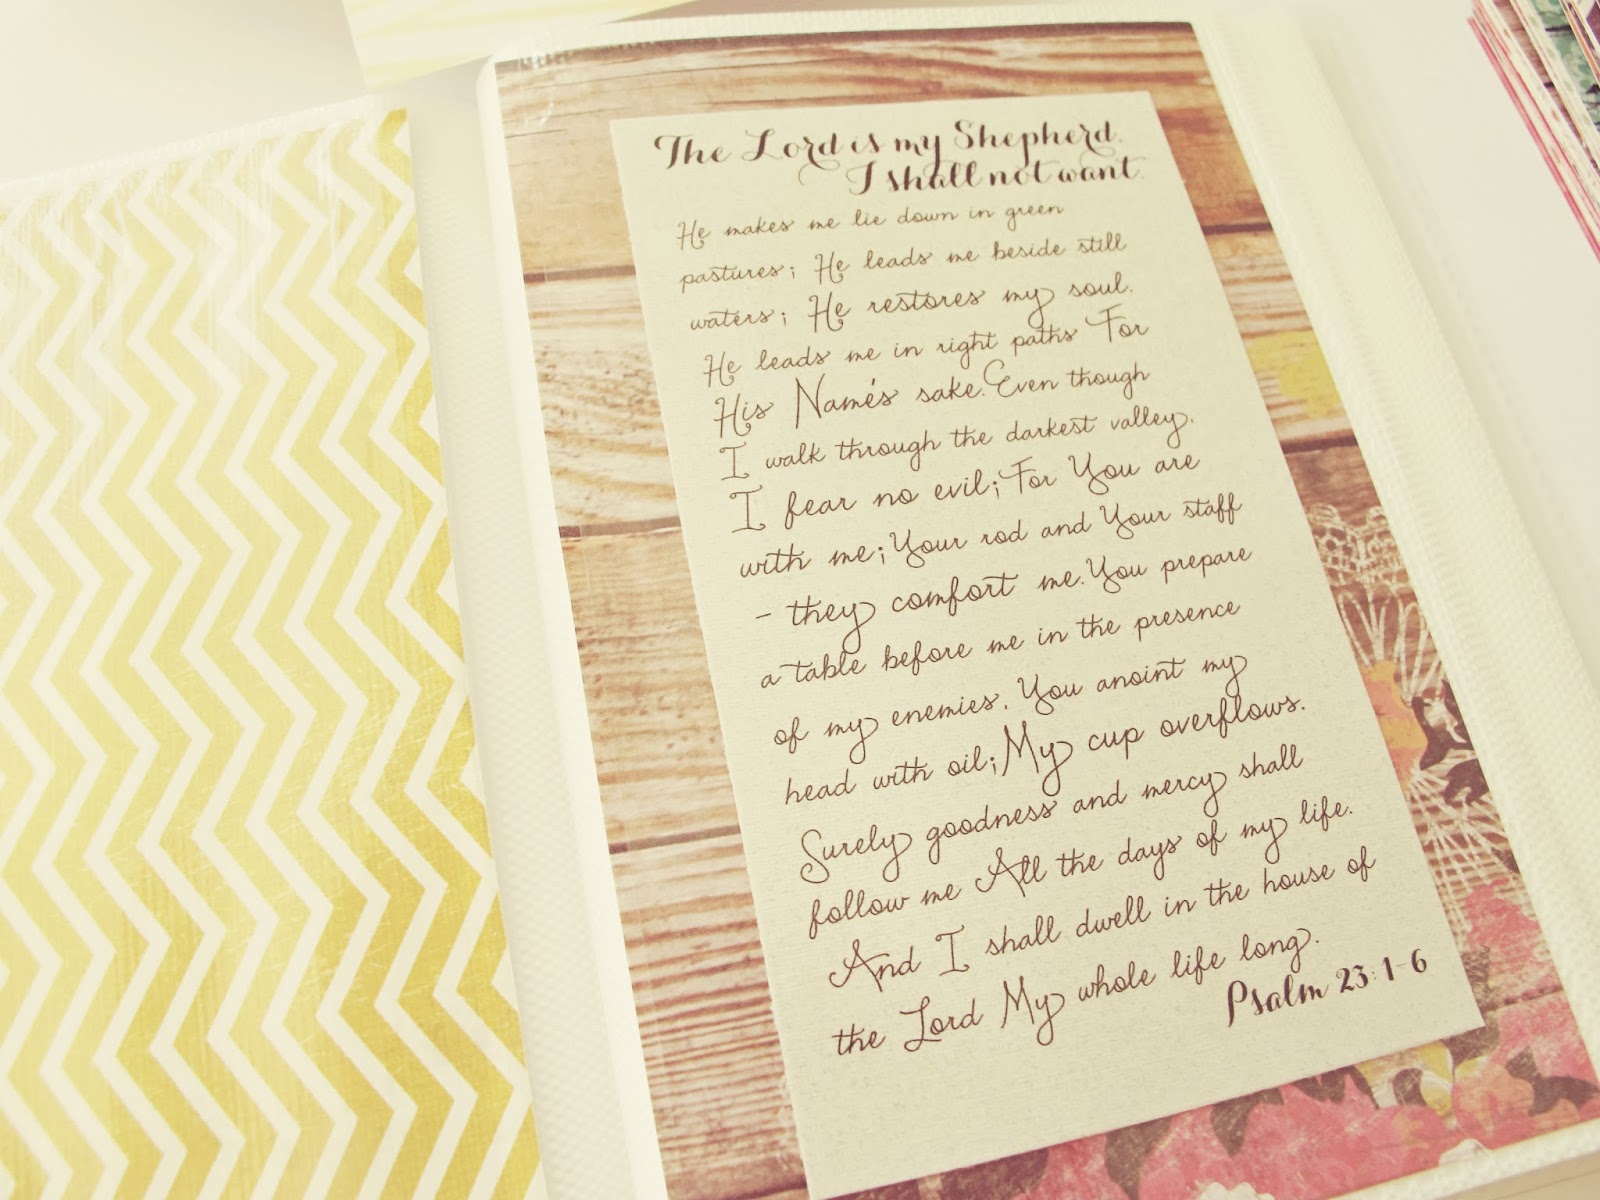 The Lord is my Shepherd.
I shall not want.
He makes me lie down in green
pastures; He leads me beside still
waters; He restores my soul.
He leads me in right paths For
His Name's sake. Even though
I walk through the darkest valley,
I fear no evil; For You are
with me; Your rod and Your staff
- they comfort me. You prepare
a table before me in the presence
of my enemies. You anoint my
head with oil; My cup overflows.
Surely goodness and mercy shall
follow me All the days of my life.
And I shall dwell in the house of
the Lord My whole life long.
Psalm 23:1-6